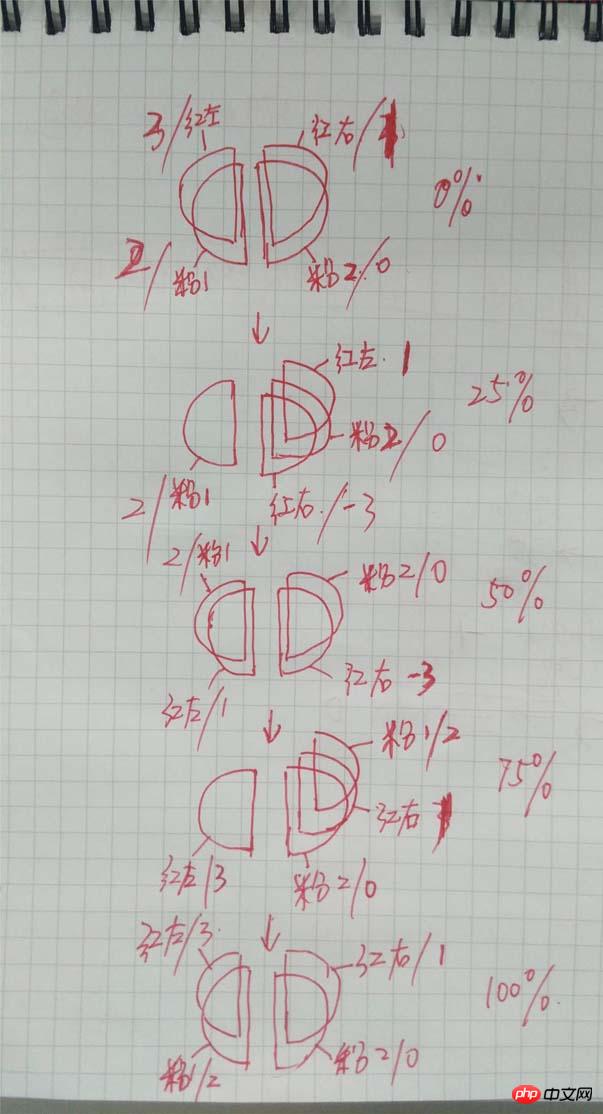 3/红左
红右/1
0%
2/粉1
粉2/0
↓
红左 1
25%
粉2/0
2/粉1
红右/-3
↓
2/粉1
粉2/0
50%
红左/1
红右 -3
↓
粉1/2
75%
红右 1
红左/3
粉2/0
↓
红左/3
红右/1
100%
粉1/2
粉2/0
php 中文网